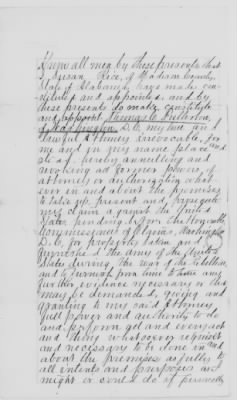 Know all men by these presents that
I, Susan Rice, of Madison County,
State of Alabama have made con-
stituted and appointed, and by
these presents do make, constitute
and appoint Thomas C. Fullerton,
of Washington D.C. my true and
lawful attorney irrevocable, for
me and in my name place and
stead, hereby annulling and
revoking all former powers of
attorney or authorization what
ever in and about the premises
to take up, present and prosecute
my claim against the United
States pending before the Honorable
Commissioners of Claims, Washington
D.C. for property taken and
furnished the army of the United
States during the war of the rebellion
and to furnish from time to time any
further evidence necessary or that
may be demanded, giving and
granting to my said Attorney
full power and authority to do
and perform all and every act
and thing whatsoever requisite
and necessary to be done in and
about the premises as fully to
all intents and purposes as I
might or could do if personally